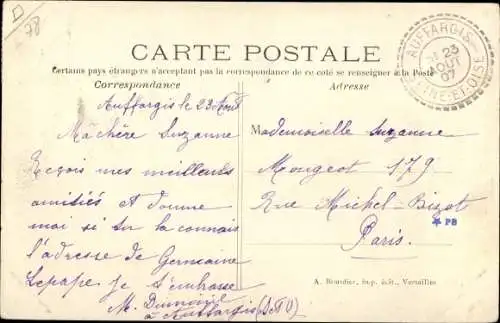 78
CARTE POSTALE
Certains pays étrangers n'acceptant pas la correspondance de ce coté se renseigner à la Poste
Correspondance
Auffargis le 23 Août
Ma chère Suzanne
Reçois mes meilleurs
amitiés et donne
moi si tu la connais
l'adresse de Germaine
Lepape. Je t'embrasse
M.
à Auffargis (S et O)
Adresse
Mademoiselle Suzanne
Mougeot 179
Rue Michel-Bizot
Paris.
PB
A. Bourdier, imp. édit., Versailles
AUFFARGIS
23
AOUT
07
SEINE-ET-OISE